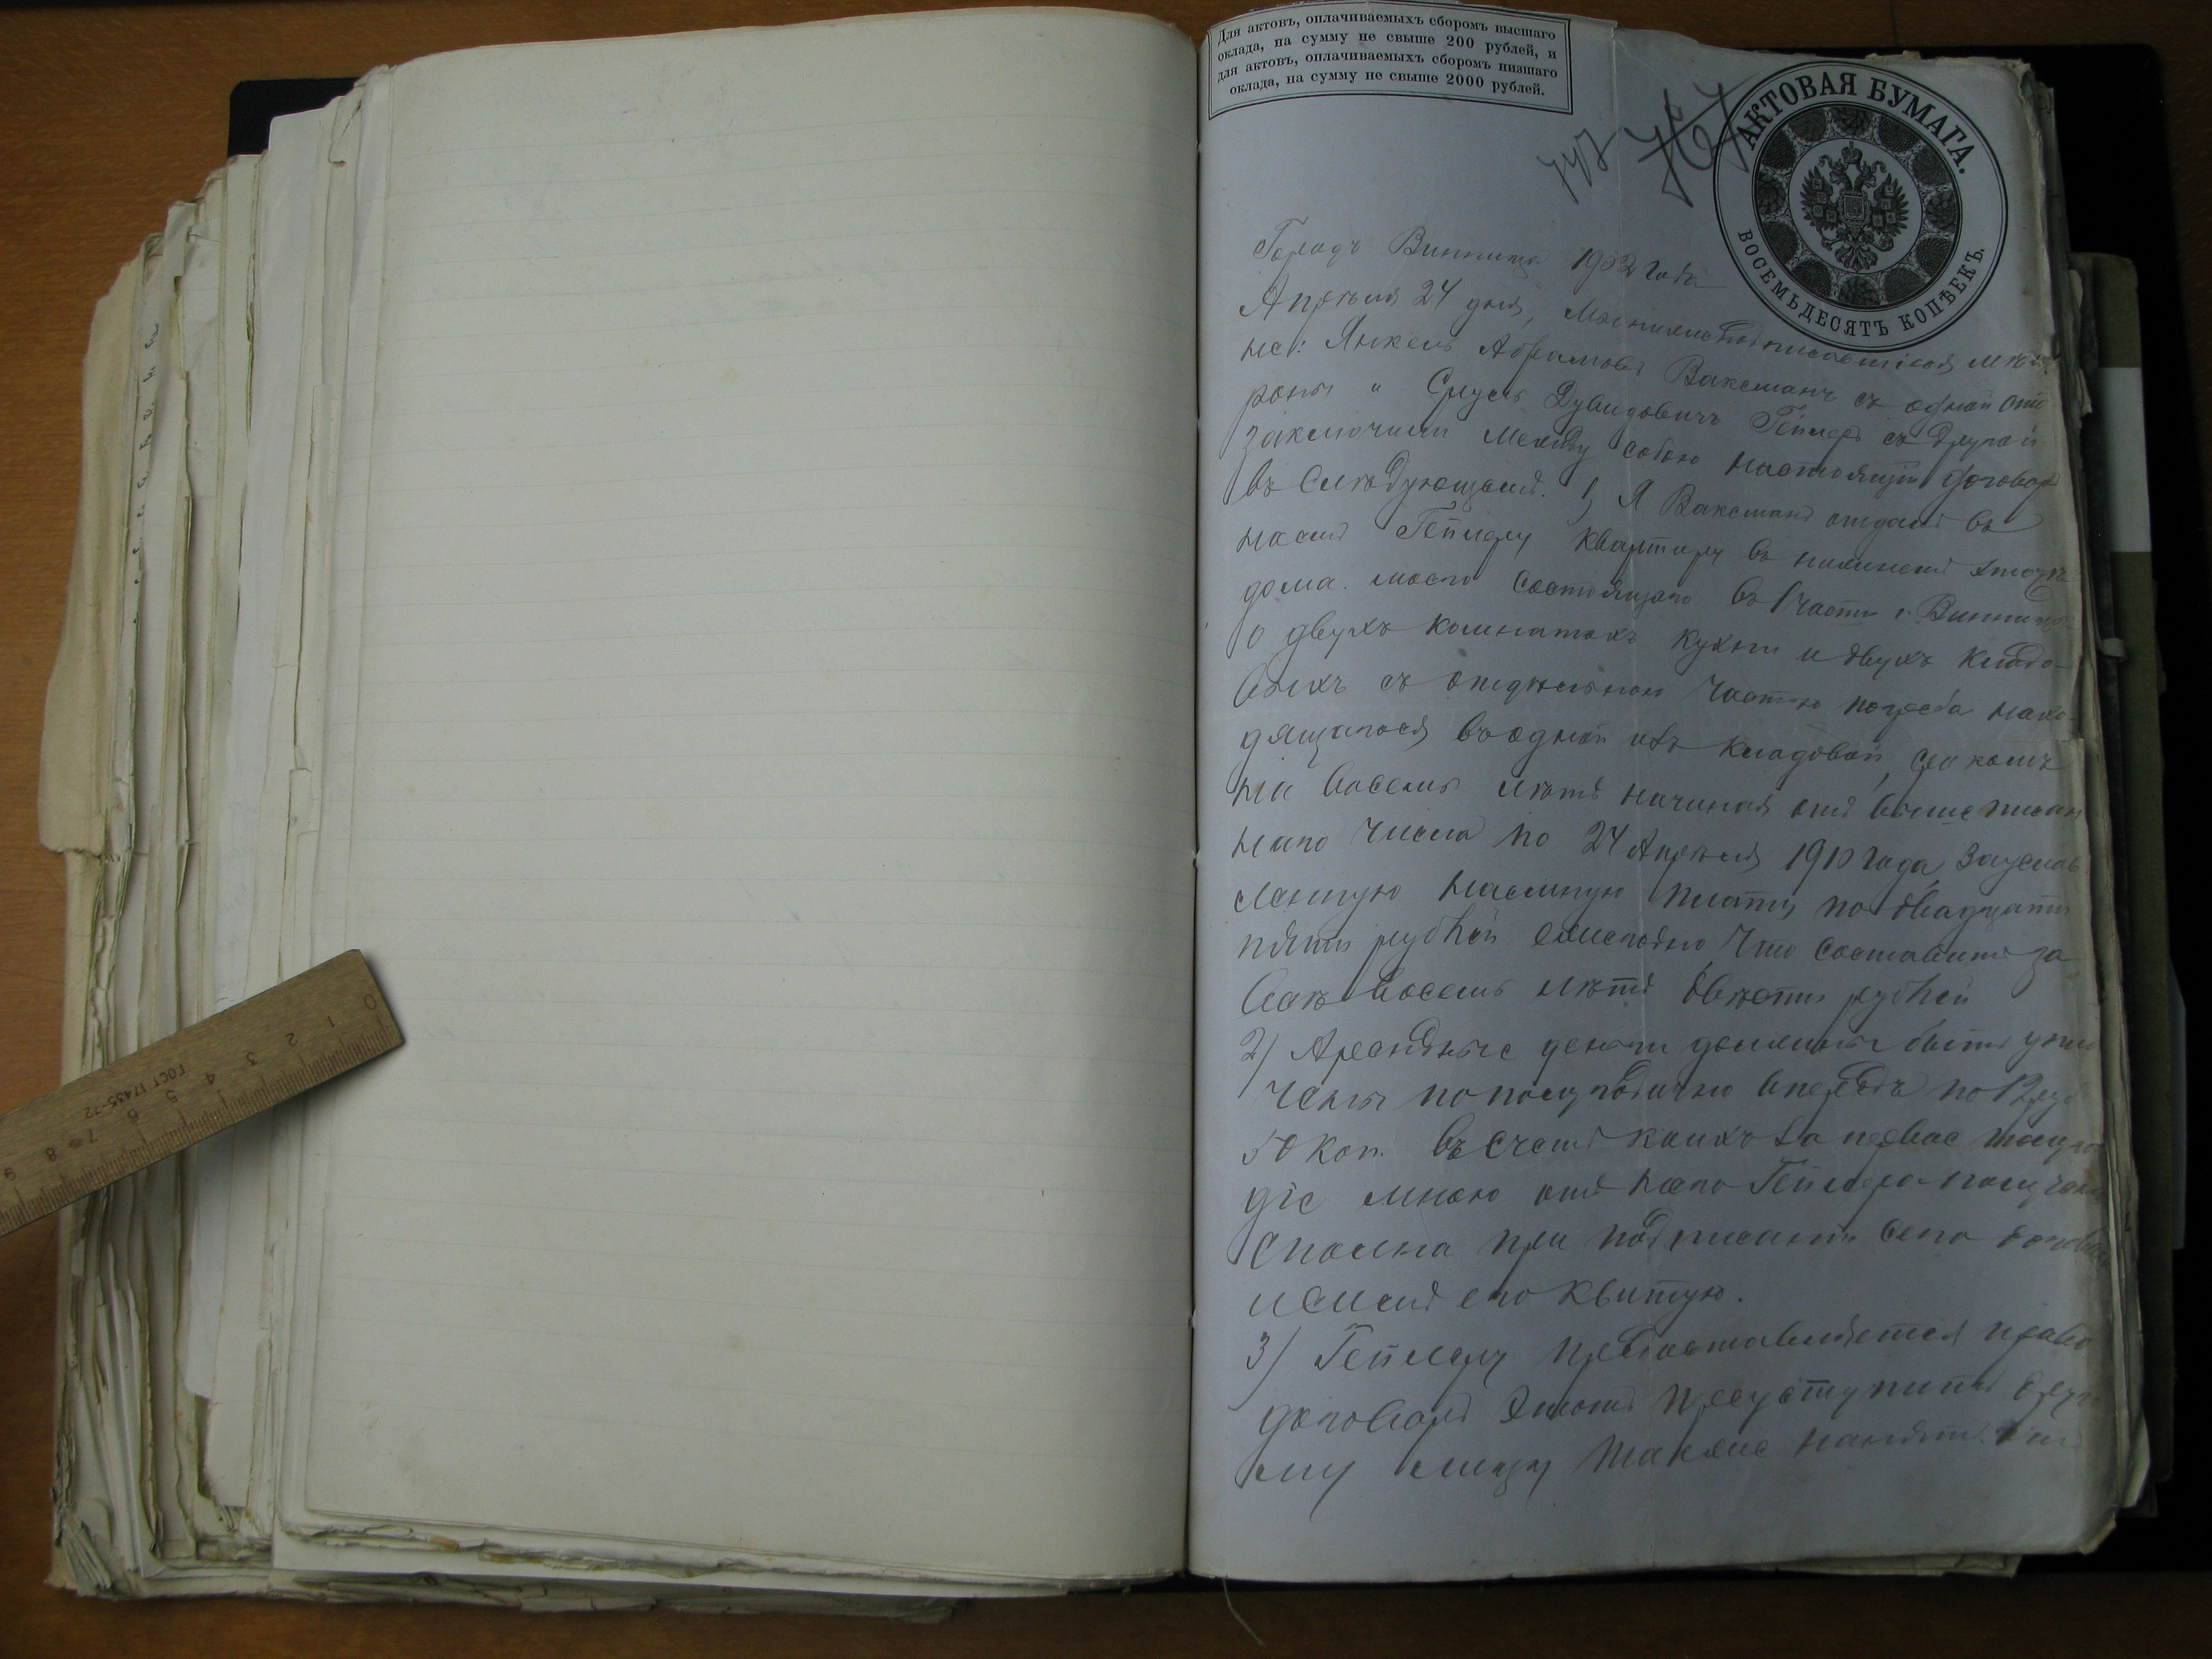 Для актовъ, оплачиваемыхъ сборомъ высшаго
оклада, на сумму не свыше 200 рублей, и
для актовъ, оплачиваемыхъ сборомъ низшаго
оклада, на сумму не свыше 2000 рублей.
АКТОВАЯ БУМАГА.
ВОСЕМЬДЕСЯТЪ КОПѢЕКЪ.
747
767
Городъ Винница 1902 года
Апрѣля 24 дня, Мы нижеподписавшіеся мѣща
не: Янкель Абрамовъ Ваксманъ съ одной сто
роны и Сруль Дувидовичъ Гейлеръ съ другой
заключили между собою настоящій договоръ
въ слѣдующемъ. 1) Я Ваксманъ отдалъ въ
наемъ Гейлеру квартиру въ нижнемъ этажѣ
дома моего состоящаго въ 1 части г. Винницы
о двухъ комнатахъ кухни и двухъ кладо-
выхъ съ отдѣльною частью погреба нахо-
дящагося въ одной изъ кладовой, срокомъ
на восемь лѣтъ начиная отъ вышеписан
наго числа по 24 Апрѣля 1910 года, за услов
ленную наемную плату по двадцати
пяти рублей ежегодно, что составитъ за
всѣ восемь лѣтъ двѣсти рублей
2) Арендные деньги должны быть упла
чены по полугодично впередъ по 12 руб
50 коп. въ счетъ коихъ за первое полуго
діе мною отъ него Гейлера получены
сполна при подписаніи сего договора
и симъ его квитую.
3) Гейлеру предоставляется право
договоръ этотъ переуступить друго
му лицу также нанять